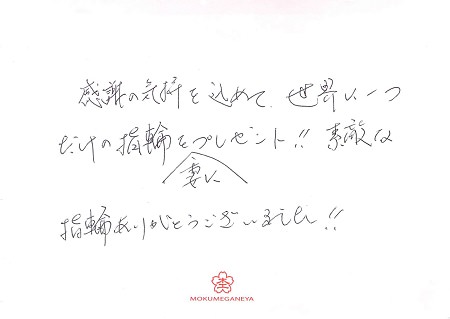 感謝の気持を込めて、世界に一つ
だけの指輪をプレゼント!! 素敵な
妻に
指輪ありがとうございました!!
MOKUMEGANEYA